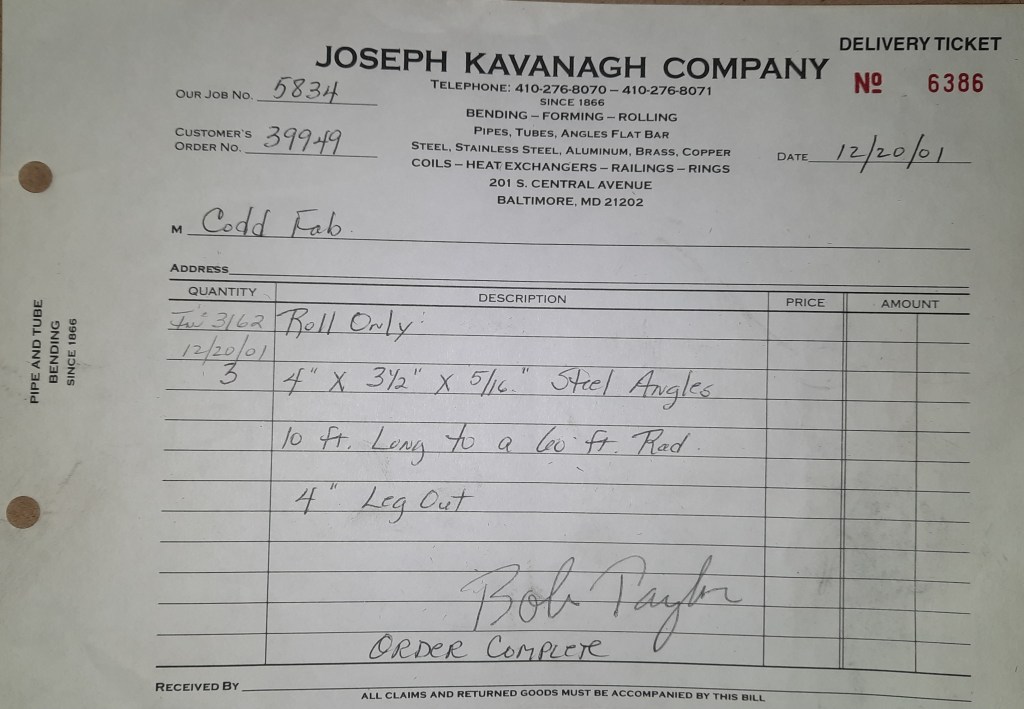 DELIVERY TICKET
JOSEPH KAVANAGH COMPANY
No 6386
OUR JOB NO. 5834
TELEPHONE: 410-276-8070 – 410-276-8071
SINCE 1866
BENDING – FORMING – ROLLING
CUSTOMER'S ORDER NO. 39949
PIPES, TUBES, ANGLES FLAT BAR
STEEL, STAINLESS STEEL, ALUMINUM, BRASS, COPPER
DATE 12/20/01
COILS – HEAT EXCHANGERS – RAILINGS – RINGS
201 S. CENTRAL AVENUE
BALTIMORE, MD 21202
M Codd Fab.
ADDRESS
QUANTITY DESCRIPTION PRICE AMOUNT
3162 Roll Only:
12/20/01
3 4" X 3 1/2" X 5/16" Steel Angles
10 ft. Long to a 60 ft. Rad.
4" Leg Out
Bob Taylor
ORDER COMPLETE
RECEIVED BY
ALL CLAIMS AND RETURNED GOODS MUST BE ACCOMPANIED BY THIS BILL
PIPE AND TUBE
BENDING
SINCE 1866